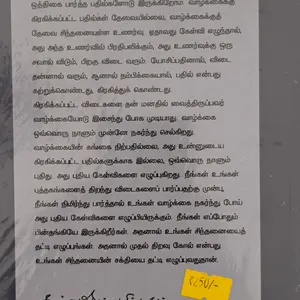 ஒத்திகை பார்த்த பதில்களோடு இருக்கிறோம். வாழ்க்கைக்கு
கிரகிக்கப்பட்ட பதில்கள் தேவையில்லை, வாழ்க்கைக்குத்
தேவை சிந்தனையுள்ள உணர்வு. ஏதாவது கேள்வி எழுந்தால்,
அது அந்த உணர்வில் பிரதிபலிக்கும், அது உணர்வுக்கு ஒரு
சவால் விடும், பிறகு விடை வரும் யோசிப்பதினால், விடை
தன்னால் வரும், ஆனால் நம்பிக்கையால், பதில் என்பது
கற்றுக்கொண்டது, கிரகித்துக் கொண்டது.
கிரகிக்கப்பட்ட விடைகளை தன் மனதில் வைத்திருப்பவர்
வாழ்க்கையோடு இசைந்து போக முடியாது. வாழ்க்கை
ஒவ்வொரு நாளும் முன்னே நகர்ந்து செல்கிறது.
வாழ்க்கையின் கங்கை நிற்பதில்லை, அது உன்னுடைய
கிரகிக்கப்பட்ட பதில்களுக்காக இல்லை, ஒவ்வொரு நாளும்
புதிது. அது புதிய கேள்விகளை எழுப்புகிறது. நீங்கள் உங்கள்
புத்தகங்களைத் திறந்து விடைகளைப் பார்ப்பதற்கு முன்பு,
நீங்கள் நிமிர்ந்து பார்த்தால் உங்கள் வாழ்க்கை நகர்ந்து போய்
அது புதிய கேள்விகளை எழுப்பியிருக்கும். நீங்கள் எப்போதும்
பின்தங்கியே இருக்கிறீர்கள். அதனால் உங்கள் சிந்தனையைத்
தட்டி எழுப்புங்கள். அதனால் முதல் திறவு கோல் என்பது
உங்கள் சிந்தனையின் சக்தியை தட்டி எழுப்புவதுதான்.
250/-